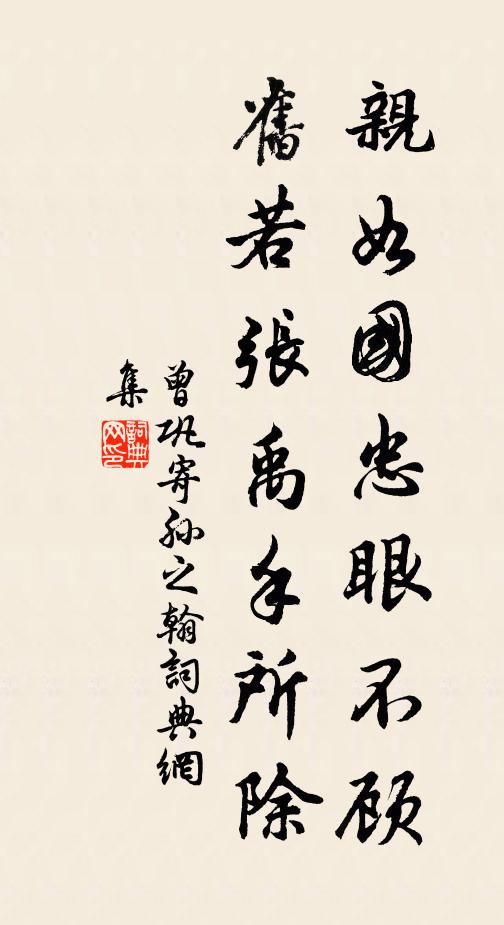 親如國忠眼不顾
舊若張禹手所除
曾巩寄孙之翰詞典網
集
詞典网印